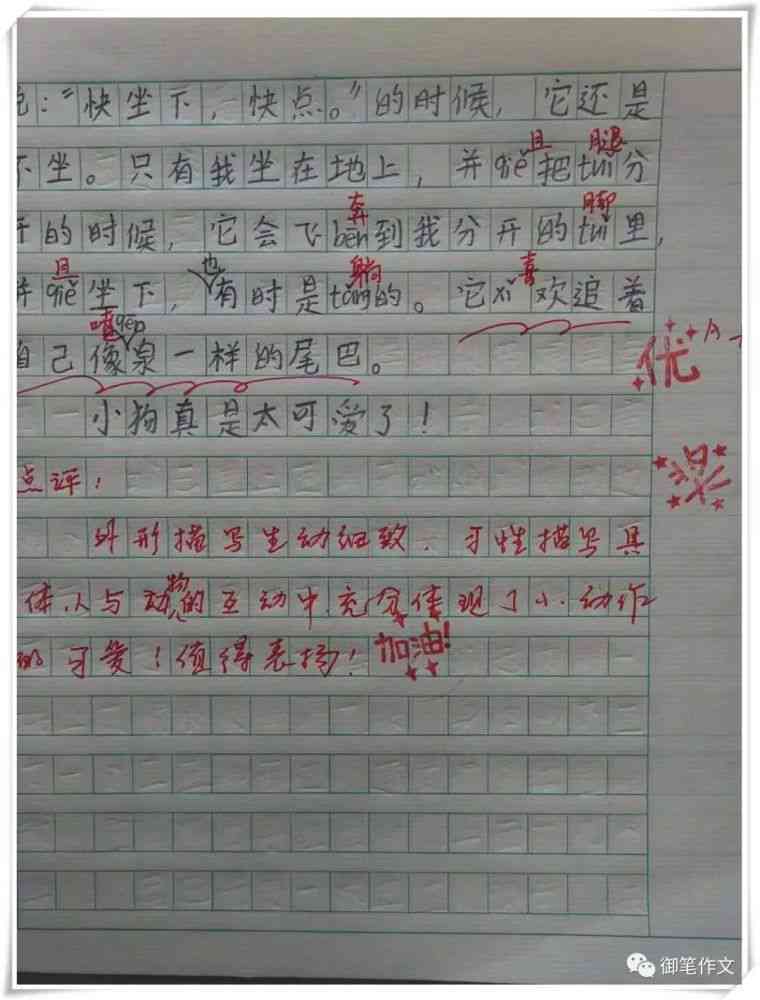 说:“快坐下,快点。”的时候,它还是
且 腿
不坐。只有我坐在地上,并qiě把tuǐ分
奔 脚
开的时候,它会飞bēn到我分开的tuǐ里,
且 也 躺 喜
并qiě坐下,有时是tǎng的。它xǐ欢追着
喷
自己像泉一样的尾巴。
优
小狗真是太可爱了!
点评!
外形描写生动细致.习性描写具
体,人与动物的互动中,充分体现了小动作
的可爱!值得表扬!加油!
御笔作文